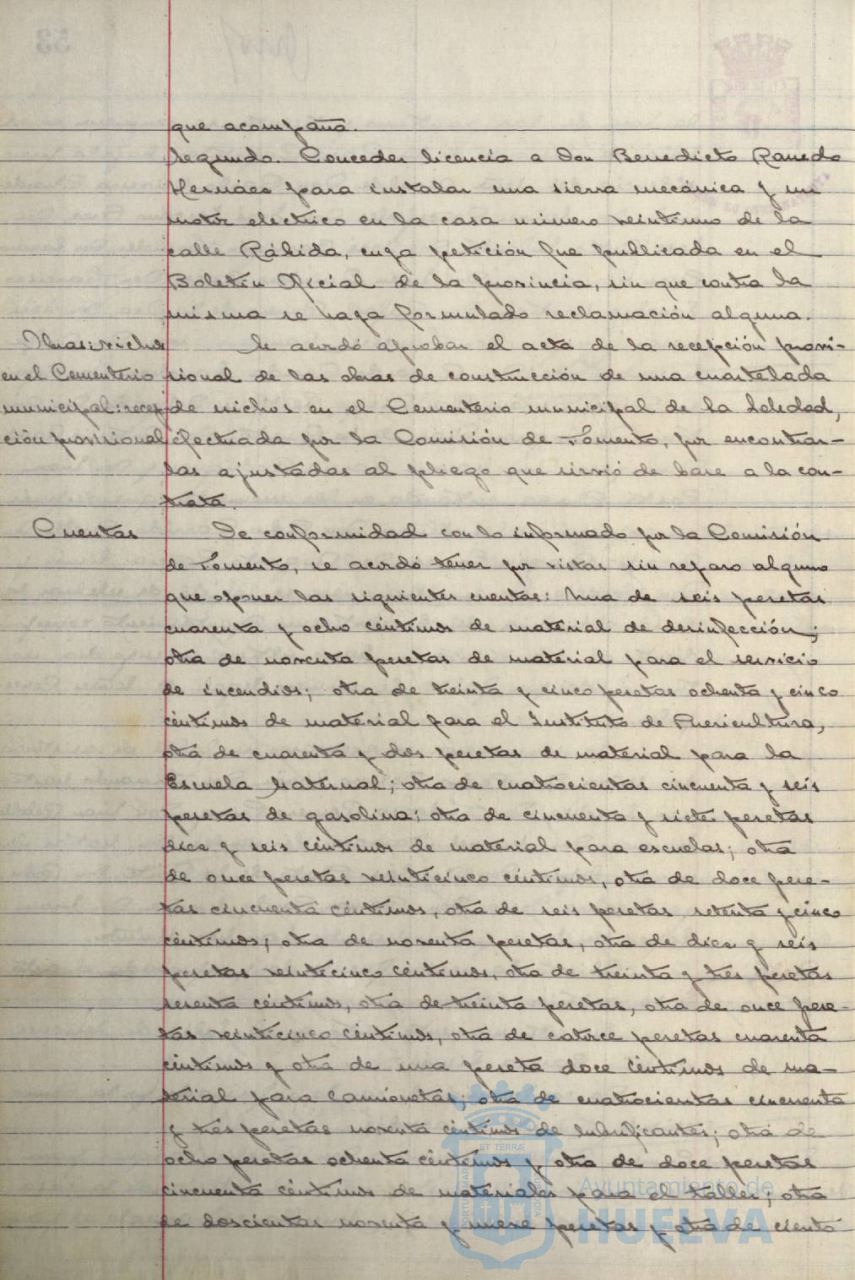 que acompaña.
Segundo. Conceder licencia a Don Benedicto Ranedo
para instalar una sierra mecánica y un
motor electrico en la casa número veintiuno de la
calle Rábida, cuya petición fue publicada en el
Boletín Oficial de la provincia, sin que contra la
misma se haya formulado reclamación alguna.
Obras: nichos
en el Cementerio
municipal: recep-
ción provisional
Se acordó aprobar el acta de la recepción provi-
sional de las obras de construcción de una cuartelada
de nichos en el Cementerio municipal de la Soledad,
efectuada por la Comisión de Fomento, por encontrar-
las ajustadas al pliego que sirvió de base a la con-
trata.
Cuentas
De conformidad con lo informado por la Comisión
de Fomento, se acordó tener por vistas sin reparo alguno
que oponer las siguientes cuentas: Una de seis pesetas
cuarenta y ocho céntimos de material de desinfección;
otra de noventa pesetas de material para el servicio
de incendios; otra de treinta y cinco pesetas ochenta y cinco
céntimos de material para el Instituto de Puericultura,
otra de cuarenta y dos pesetas de material para la
Escuela Maternal; otra de cuatrocientas cincuenta y seis
pesetas de gasolina; otra de cincuenta y siete pesetas
diez y seis céntimos de material para escuelas; otra
de once pesetas veinticinco céntimos, otra de doce pese-
tas cincuenta céntimos, otra de seis pesetas setenta y cinco
céntimos; otra de noventa pesetas, otra de diez y seis
pesetas veinticinco céntimos, otra de treinta y tres pesetas
sesenta céntimos, otra de treinta pesetas, otra de once pese-
tas veinticinco céntimos, otra de catorce pesetas cuarenta
céntimos y otra de una peseta doce céntimos de ma-
terial para camionetas; otra de cuatrocientas cincuenta
y tres pesetas noventa céntimos de lubrificantes; otra de
ocho pesetas ochenta céntimos y otra de doce pesetas
cincuenta céntimos de materiales para el taller; otra
de doscientas noventa y nueve pesetas y otra de ciento
Ayuntamiento de
HUELVA